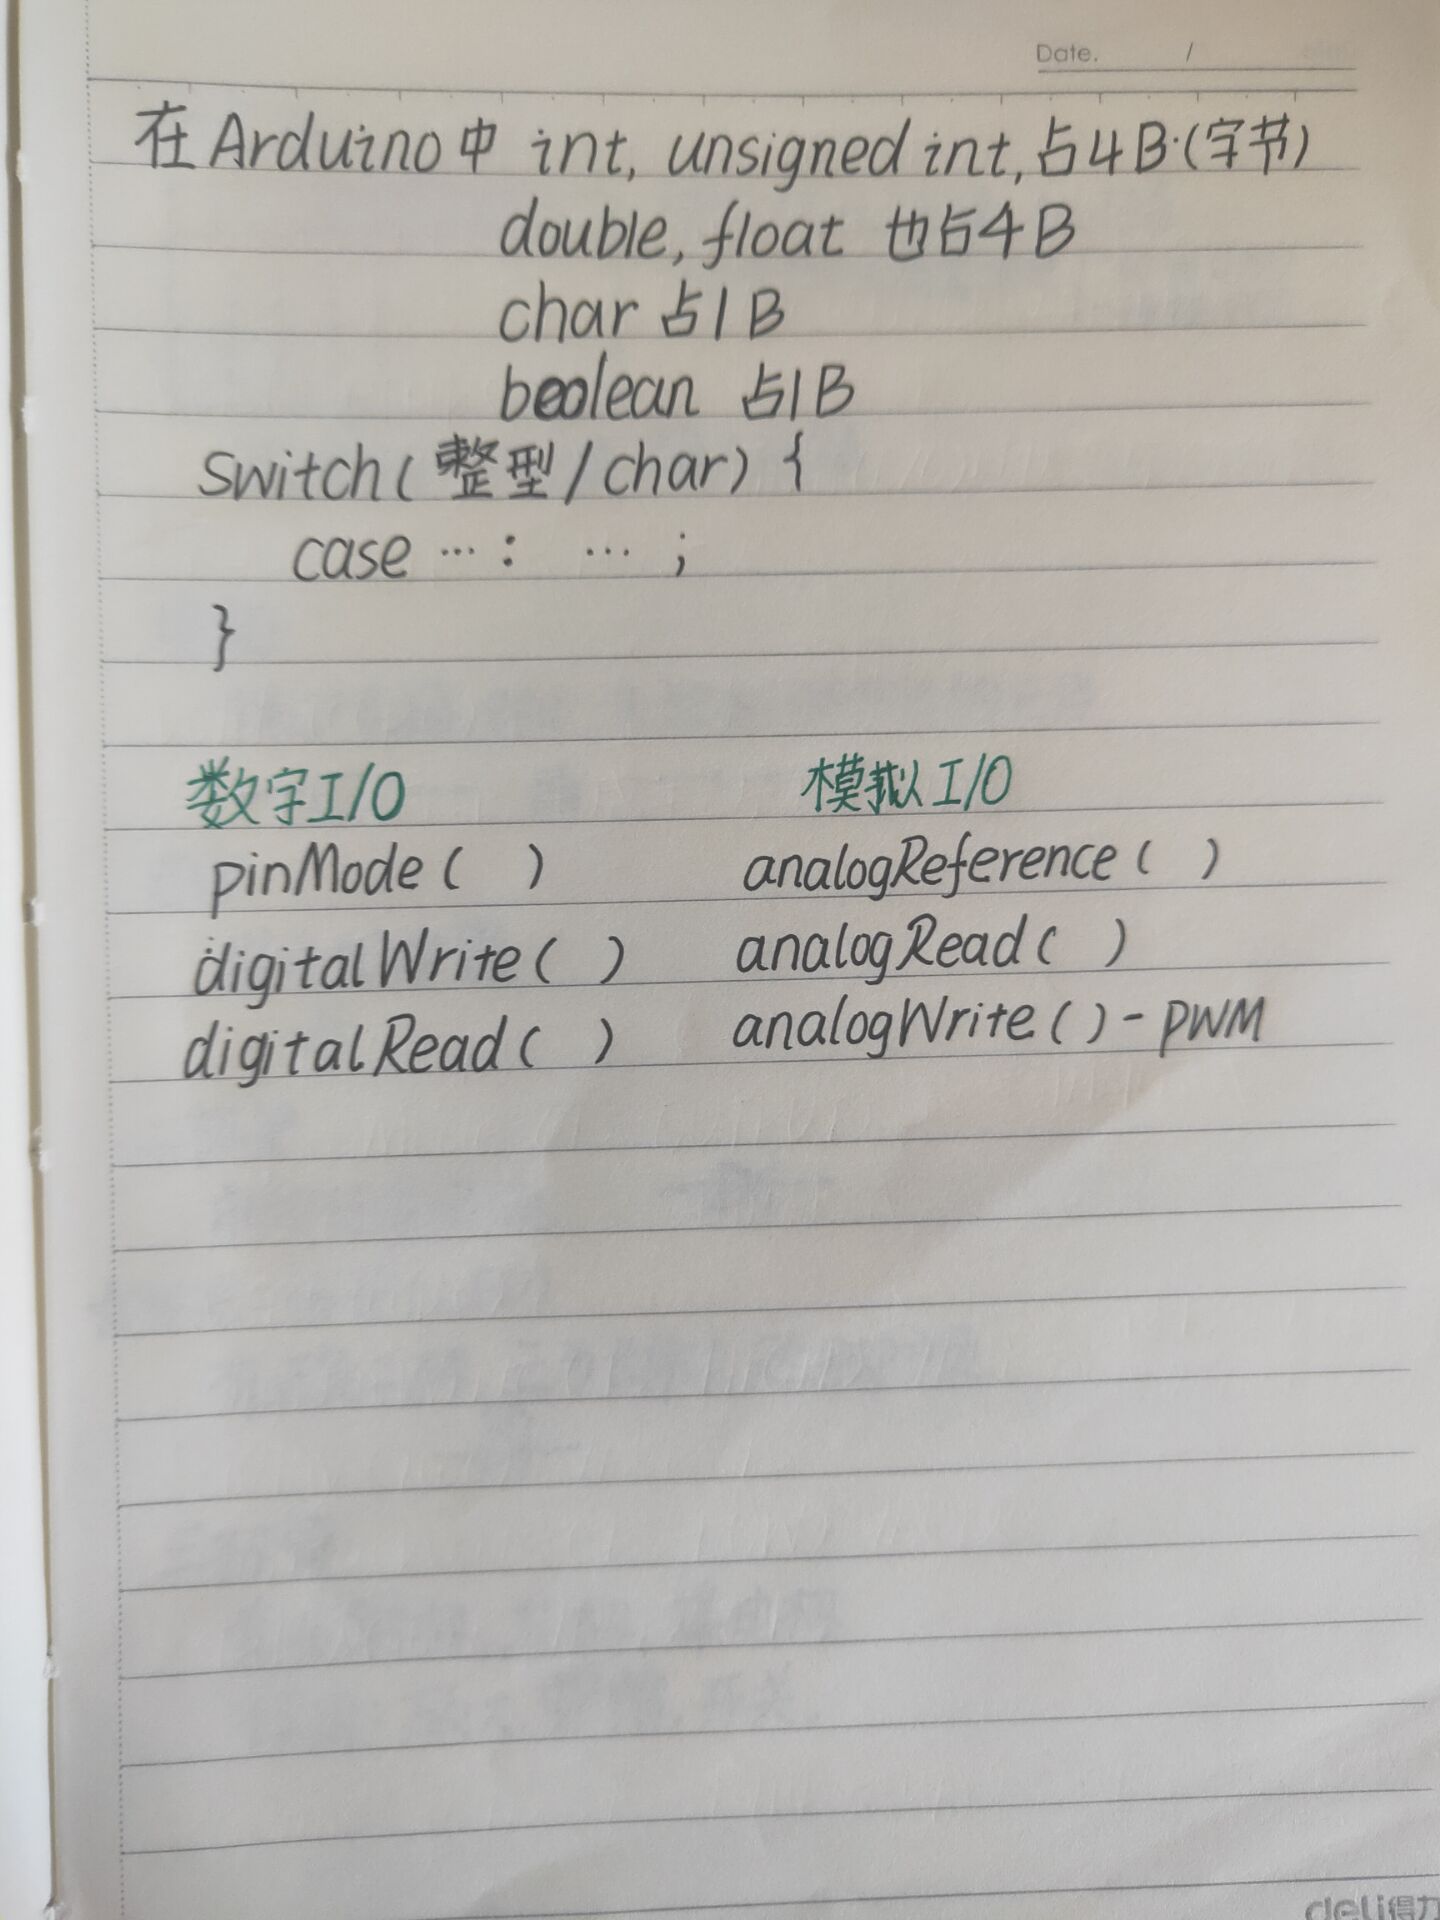 Date. /
在Arduino中 int, unsigned int,占4B·(字节)
double, float 也占4B
char 占1B
boolean 占1B
switch(整型/char) {
case …: … ;
}
数字I/O 模拟I/O
pinMode( ) analogReference( )
digitalWrite( ) analogRead( )
digitalRead( ) analogWrite( )-PWM
deli得力